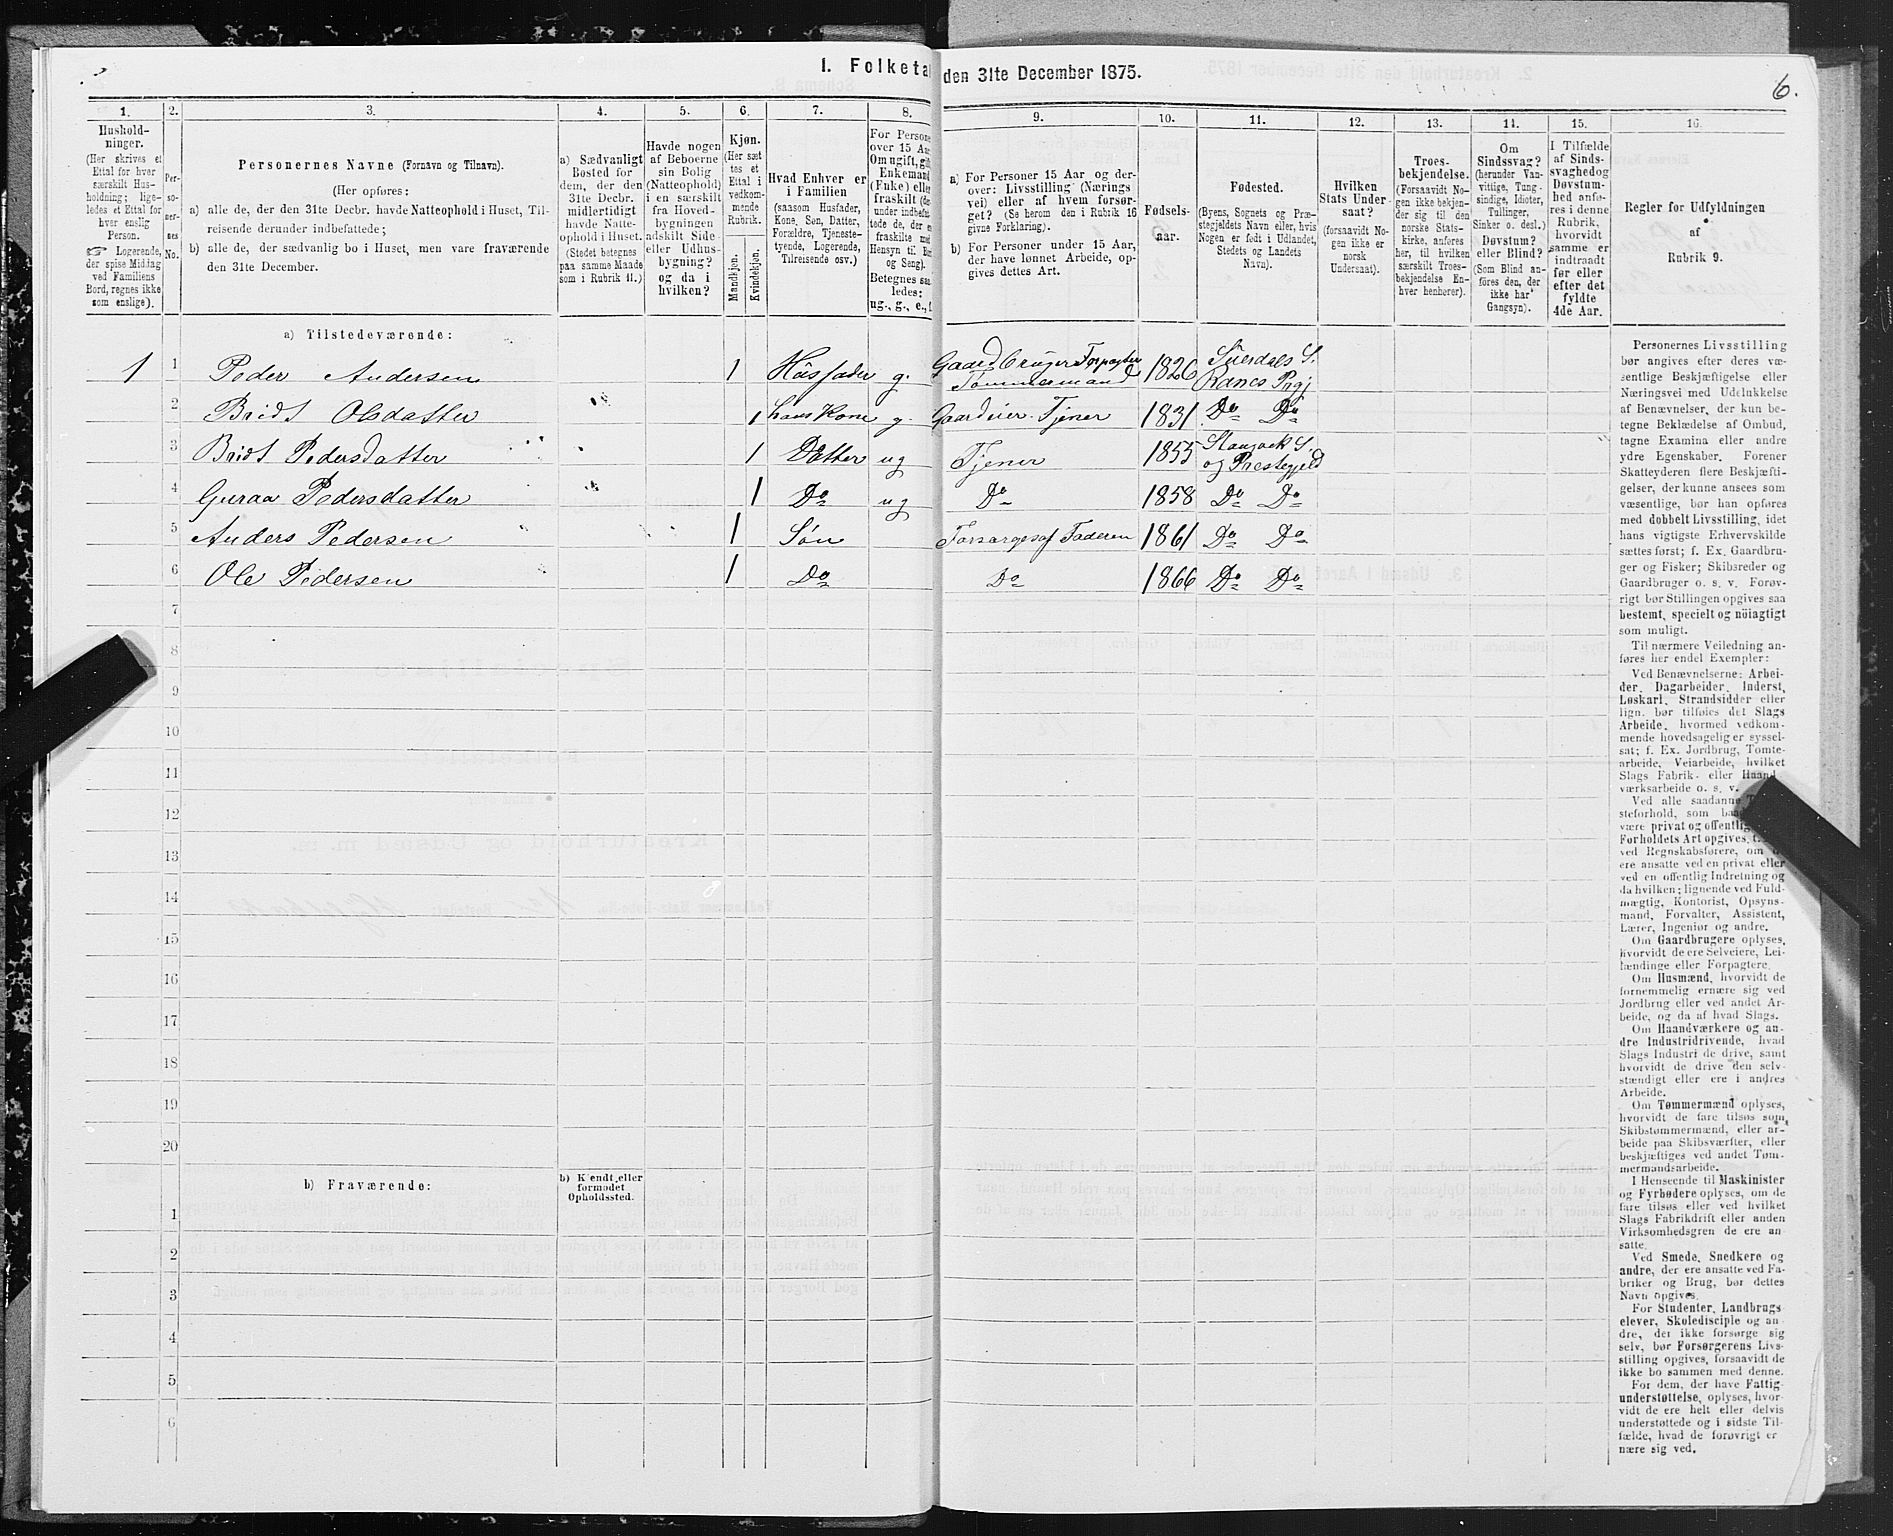 1. Folketal den 31te December 1875.
6.
1.
Hushold-
ninger.
(Her skrives et
Ettal for hver
særskilt Hus-
holdning; lige-
ledes et Ettal for
hver enslig
Person.
☞ Logerende,
der spise Middag
ved Familiens
Bord, regnes ikke
som enslige).
2.
Per-
so-
ner-
nes
No.
3.
Personernes Navne (Fornavn og Tilnavn).
(Her opføres:
a) alle de, der den 31te Decbr. havde Natteophold i Huset, Til-
reisende derunder indbefattede;
b) alle de, der sædvanlig bo i Huset, men vare fraværende
den 31te December.
4.
a) Sædvanligt
Bosted for
dem, der den
31te Decbr.
midlertidigt
havde Natte-
ophold i Huset.
(Stedet betegnes
paa samme Maade
som i Rubrik 11.)
5.
Havde nogen
af Beboerne
sin Bolig
(Natteophold)
i en særskilt
fra Hoved-
bygningen
adskilt Side
eller Udhus-
bygning?
og da i
hvilken?
6.
Kjøn.
(Her sæt
tes et
Ettal i
vedkom-
mende
Rubrik.
Mandkjøn.
Kvindekjøn.
7.
Hvad Enhver er
i Familien
(saasom Husfader,
Kone, Søn, Datter,
Forældre, Tjeneste-
tyende, Logerende,
Tilreisende osv.)
8.
For Persone
over 15 Aa
Om ugift, gif
Enkemand
(Enke) elle
fraskilt (de
under indbefat
tede de, der e
fraskilte med
Hensyn til Bo
og Seng).
Betegnes saa
ledes:
ug., g., e., f.
9.
a) For Personer 15 Aar og der-
over: Livsstilling (Nærings
vei) eller af hvem forsør-
get? (Se herom den i Rubrik 16
givne Forklaring).
b) For Personer under 15 Aar,
der have lønnet Arbeide, op-
gives dettes Art.
10.
Fødsels-
aar.
11.
Fødested.
(Byens, Sognets og Præ-
stegjeldets Navn eller, hvis
Nogen er født i Udlandet,
Stedets og Landets
Navn).
12.
Hvilken
Stats Under
saat?
(forsaavidt No-
gen ikke er
norsk
Undersaat).
13.
Troes-
bekjendelse.
(Forsaavidt No-
gen ikke bekjen-
der sig til den
norske Stats-
kirke, anføres
her, til hvilken
særskilt Troes-
bekjendelse En-
hver henhører).
14.
Om
Sindssvag?
(herunder Van-
vittige, Tung-
sindige, Idioter,
Tullinger,
Sinker o. desl.)
Døvstum?
eller Blind?
(Som Blind an-
føres den, der
ikke har
Gangsyn).
15.
I Tilfælde
af Sinds-
svaghed og
Døvstum-
hed anfø-
res i denne
Rubrik,
hvorvidt
samme er
indtraadt
før eller
efter det
fyldte
4de Aar.
16.
Regler for Udfyldningen
af
Rubrik 9.
a) Tilstedeværende:
1 1 Peder Andersen 1 Husfader g. Gaardbruger Forpagter Tømmermand 1826 Suerdals S. Ranes Prgj
2 Bridt Olsdatter 1 hans Kone g. Gaardeier. Tjener 1831 Do Do
3 Bridt Pedersdatter 1 Datter ug Tjener 1855 Stangvik S. og Prestegjeld
4 Guraa Pedersdatter 1 Do ug Do 1858 Do Do
5 Anders Pedersen 1 Søn Forsørges af Faderen 1861 Do Do
6 Ole Pedersen 1 Do Do 1866 Do Do
7
8
9
10
11
12
13
14
15
16
17
18
19
20
b) Fraværende:
b) Kjendt eller
formodet
Opholdssted.
1
2
3
4
5
6
Personernes Livsstilling
bør angives efter deres væ-
sentlige Beskjæftigelse eller
Næringsvei med Udelukkelse
af Benævnelser, der kun be-
tegne Beklædelse af Ombud,
tagne Examina eller andre
ydre Egenskaber. Forener
Skatteyderen flere Beskjæfti-
gelser, der kunne ansees som
væsentlige, bør han opføres
med dobbelt Livsstilling, idet
hans vigtigste Erhvervskilde
sættes først; f. Ex. Gaardbru-
ger og Fisker; Skibsreder og
Gaardbruger o. s. v. Forøv-
rigt bør Stillingen opgives saa
bestemt, specielt og nöiagtigt
som muligt.
Til nærmere Veiledning an-
føres her endel Exempler:
Ved Benævnelserne: Arbei-
der, Dagarbeider, Inderst,
Løskarl, Strandsidder eller
lign. bør tilføies det Slags
Arbeide, hvormed vedkom-
mende hovedsagelig er syssel-
sat; f. Ex. Jordbrug, Tomte-
arbeide, Veiarbeide, hvilket
Slags Fabrik- eller Haand
værksarbeide o. s. v.
Ved alle saadanne T
steforhold, som ba
være privat og offentlig
Forholdets Art opgives,
ved Regnskabsførere, om
ere ansatte ved en privat eller
ved en offentlig Indretning og
da hvilken; lignende ved Fuld-
mægtig, Kontorist, Opsyns-
mand, Forvalter, Assistent,
Lærer, Ingeniør og andre.
Om Gaardbrugere oplyses,
hvorvidt de ere Selveiere, Lei-
lændinge eller Forpagtere.
Om Husmænd, hvorvidt de
fornemmelig ernære sig ved
Jordbrug eller ved andet Ar-
beide, og da af hvad Slags.
Om Haandværkere og an-
dre Industridrivende, hvad
Slags Industri de drive, samt
hvorvidt de drive den selv-
stændigt eller ere i andres
Arbeide.
Om Tømmermænd oplyses,
hvorvidt de fare tilsøs som
Skibstømmermænd, eller ar-
beide paa Skibsværfter, eller
beskjæftiges ved andet Tøm-
mermandsarbeide.
I Henseende til Maskinister
og Fyrbødere oplyses, om de
fare tilsøs eller ved hvilket
Slags Fabrikdrift eller anden
Virksomhedsgren de ere an-
satte.
Ved Smede, Snedkere og
andre, der ere ansatte ved Fa-
briker og Brug, bør dettes
Navn opgives.
For Studenter, Landbrugs
elever, Skoledisciple og an-
dre, der ikke forsørge sig
selv, bør Forsørgerens Livs-
stilling opgives, forsaavidt de
ikke bo sammen med denne.
For dem, der have Fattig-
understøttelse, oplyses, hvor-
vidt de ere helt eller delvis
understøttede og i sidste Til-
fælde, hvad de forøvrigt er
nære sig ved.